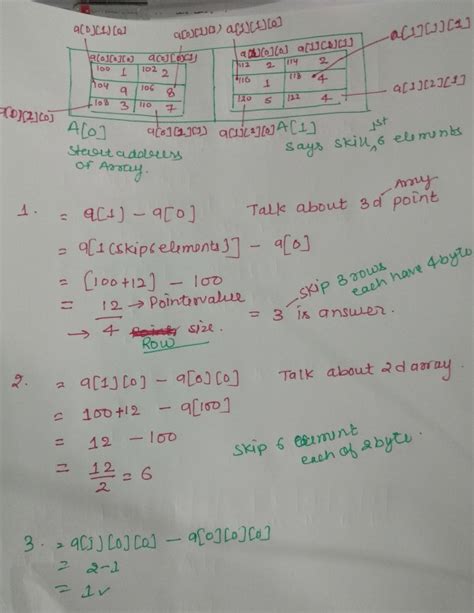 a[0][1][0] a[0][1][1] a[1][1][0]
a[0][0][0] a[0][0][1] a[1][0][0] a[1][0][1] a[1][1][1]
100 1 102 2 112 2 114 2
104 9 106 8 116 1 118 4
108 3 110 7 120 5 122 4
a[0][2][0] a[0][2][1] a[1][2][0] a[1][2][1]
A[0] A[1]
Start address of Array.
says skip 1st 6 elements
1. = a[1] - a[0] Talk about 3d Array point
= a[1(skip 6 elements)] - a[0]
= [100+12] - 100
skip 3 rows each have 4 byte
= 12 → Pointer value
→ 4 size. = 3 is answer.
Row
2. = a[1][0] - a[0][0] Talk about 2d array.
= 100+12 - a[100]
= 12 - 100
skip 6 element each of 2 byte.
= 12/2 = 6
3. = a[1][0][0] - a[0][0][0]
= 2-1
= 1✓